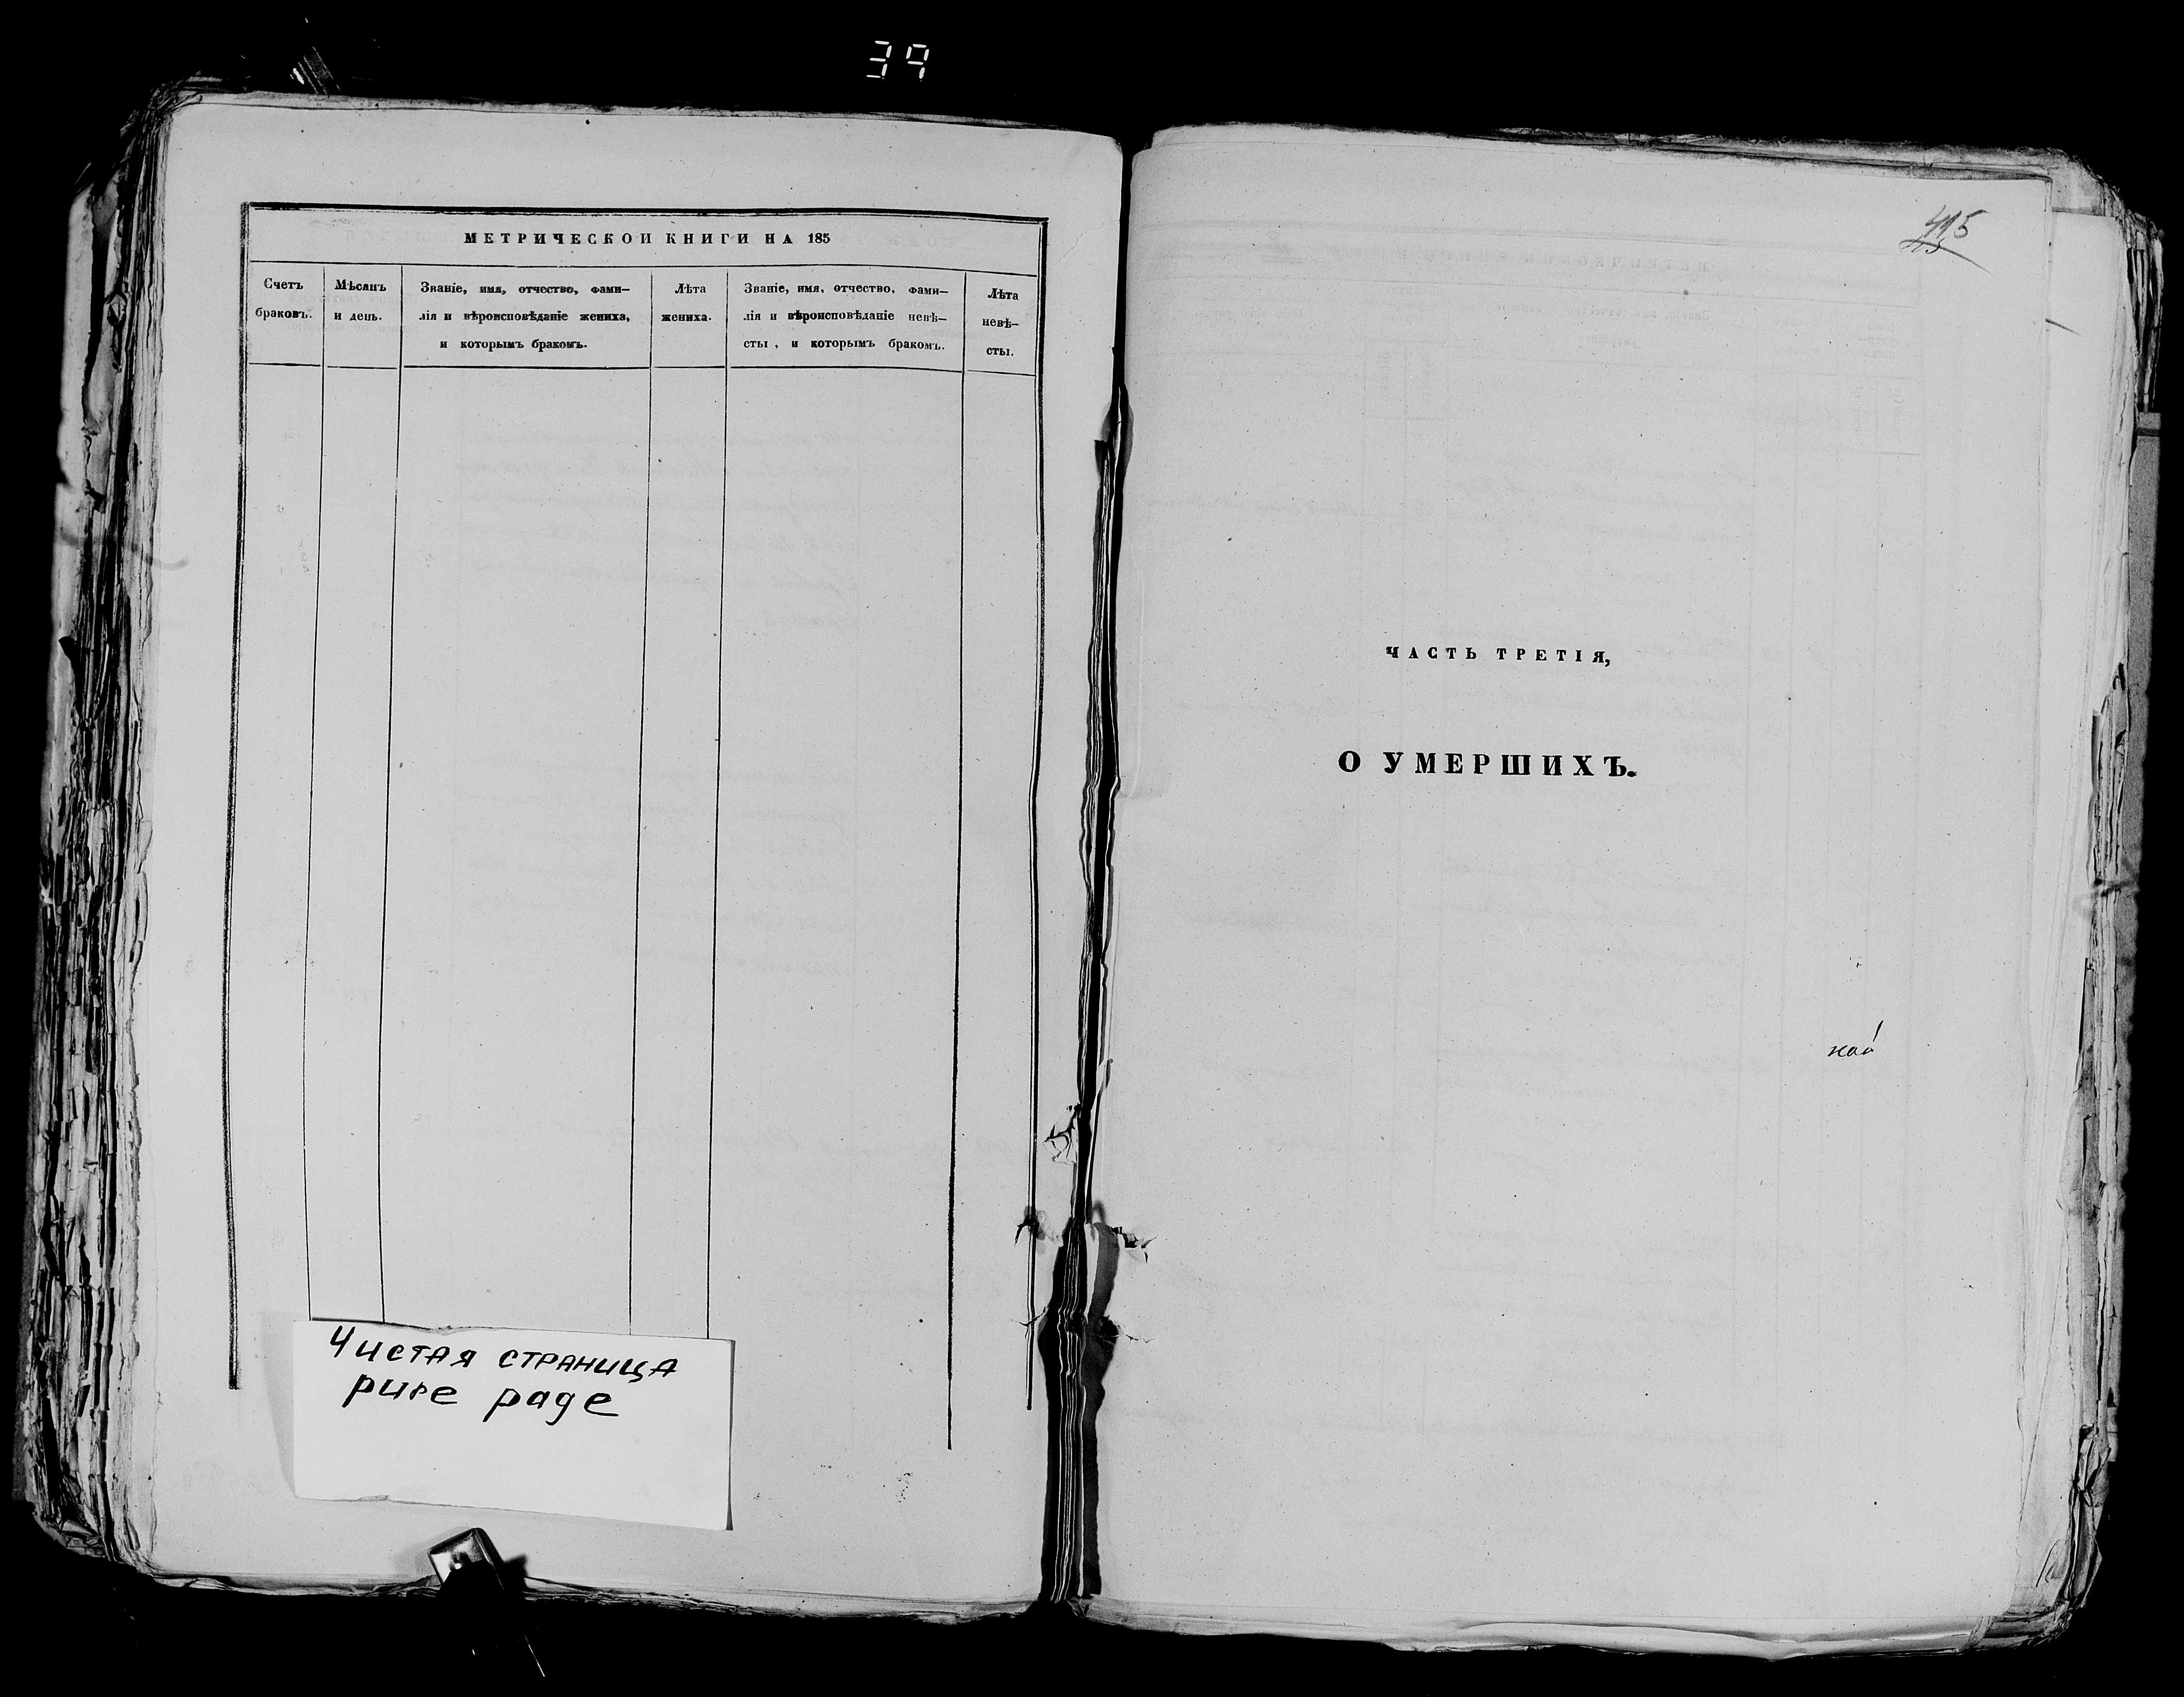 39
МЕТРИЧЕСКОЙ КНИГИ НА 185
Счетъ
браковъ.
Мѣсяцъ
и день.
Званіе, имя, отчество, фами—
лія и вѣроисповѣданіе жениха,
и которымъ бракомъ.
Лѣта
жениха.
Званіе, имя, отчество, фами—
лія и вѣроисповѣданіе невѣ—
сты, и которымъ бракомъ.
Лѣта
невѣ—
сты.
Чистая страница
pure page
415
ЧАСТЬ ТРЕТІЯ,
О УМЕРШИХЪ.